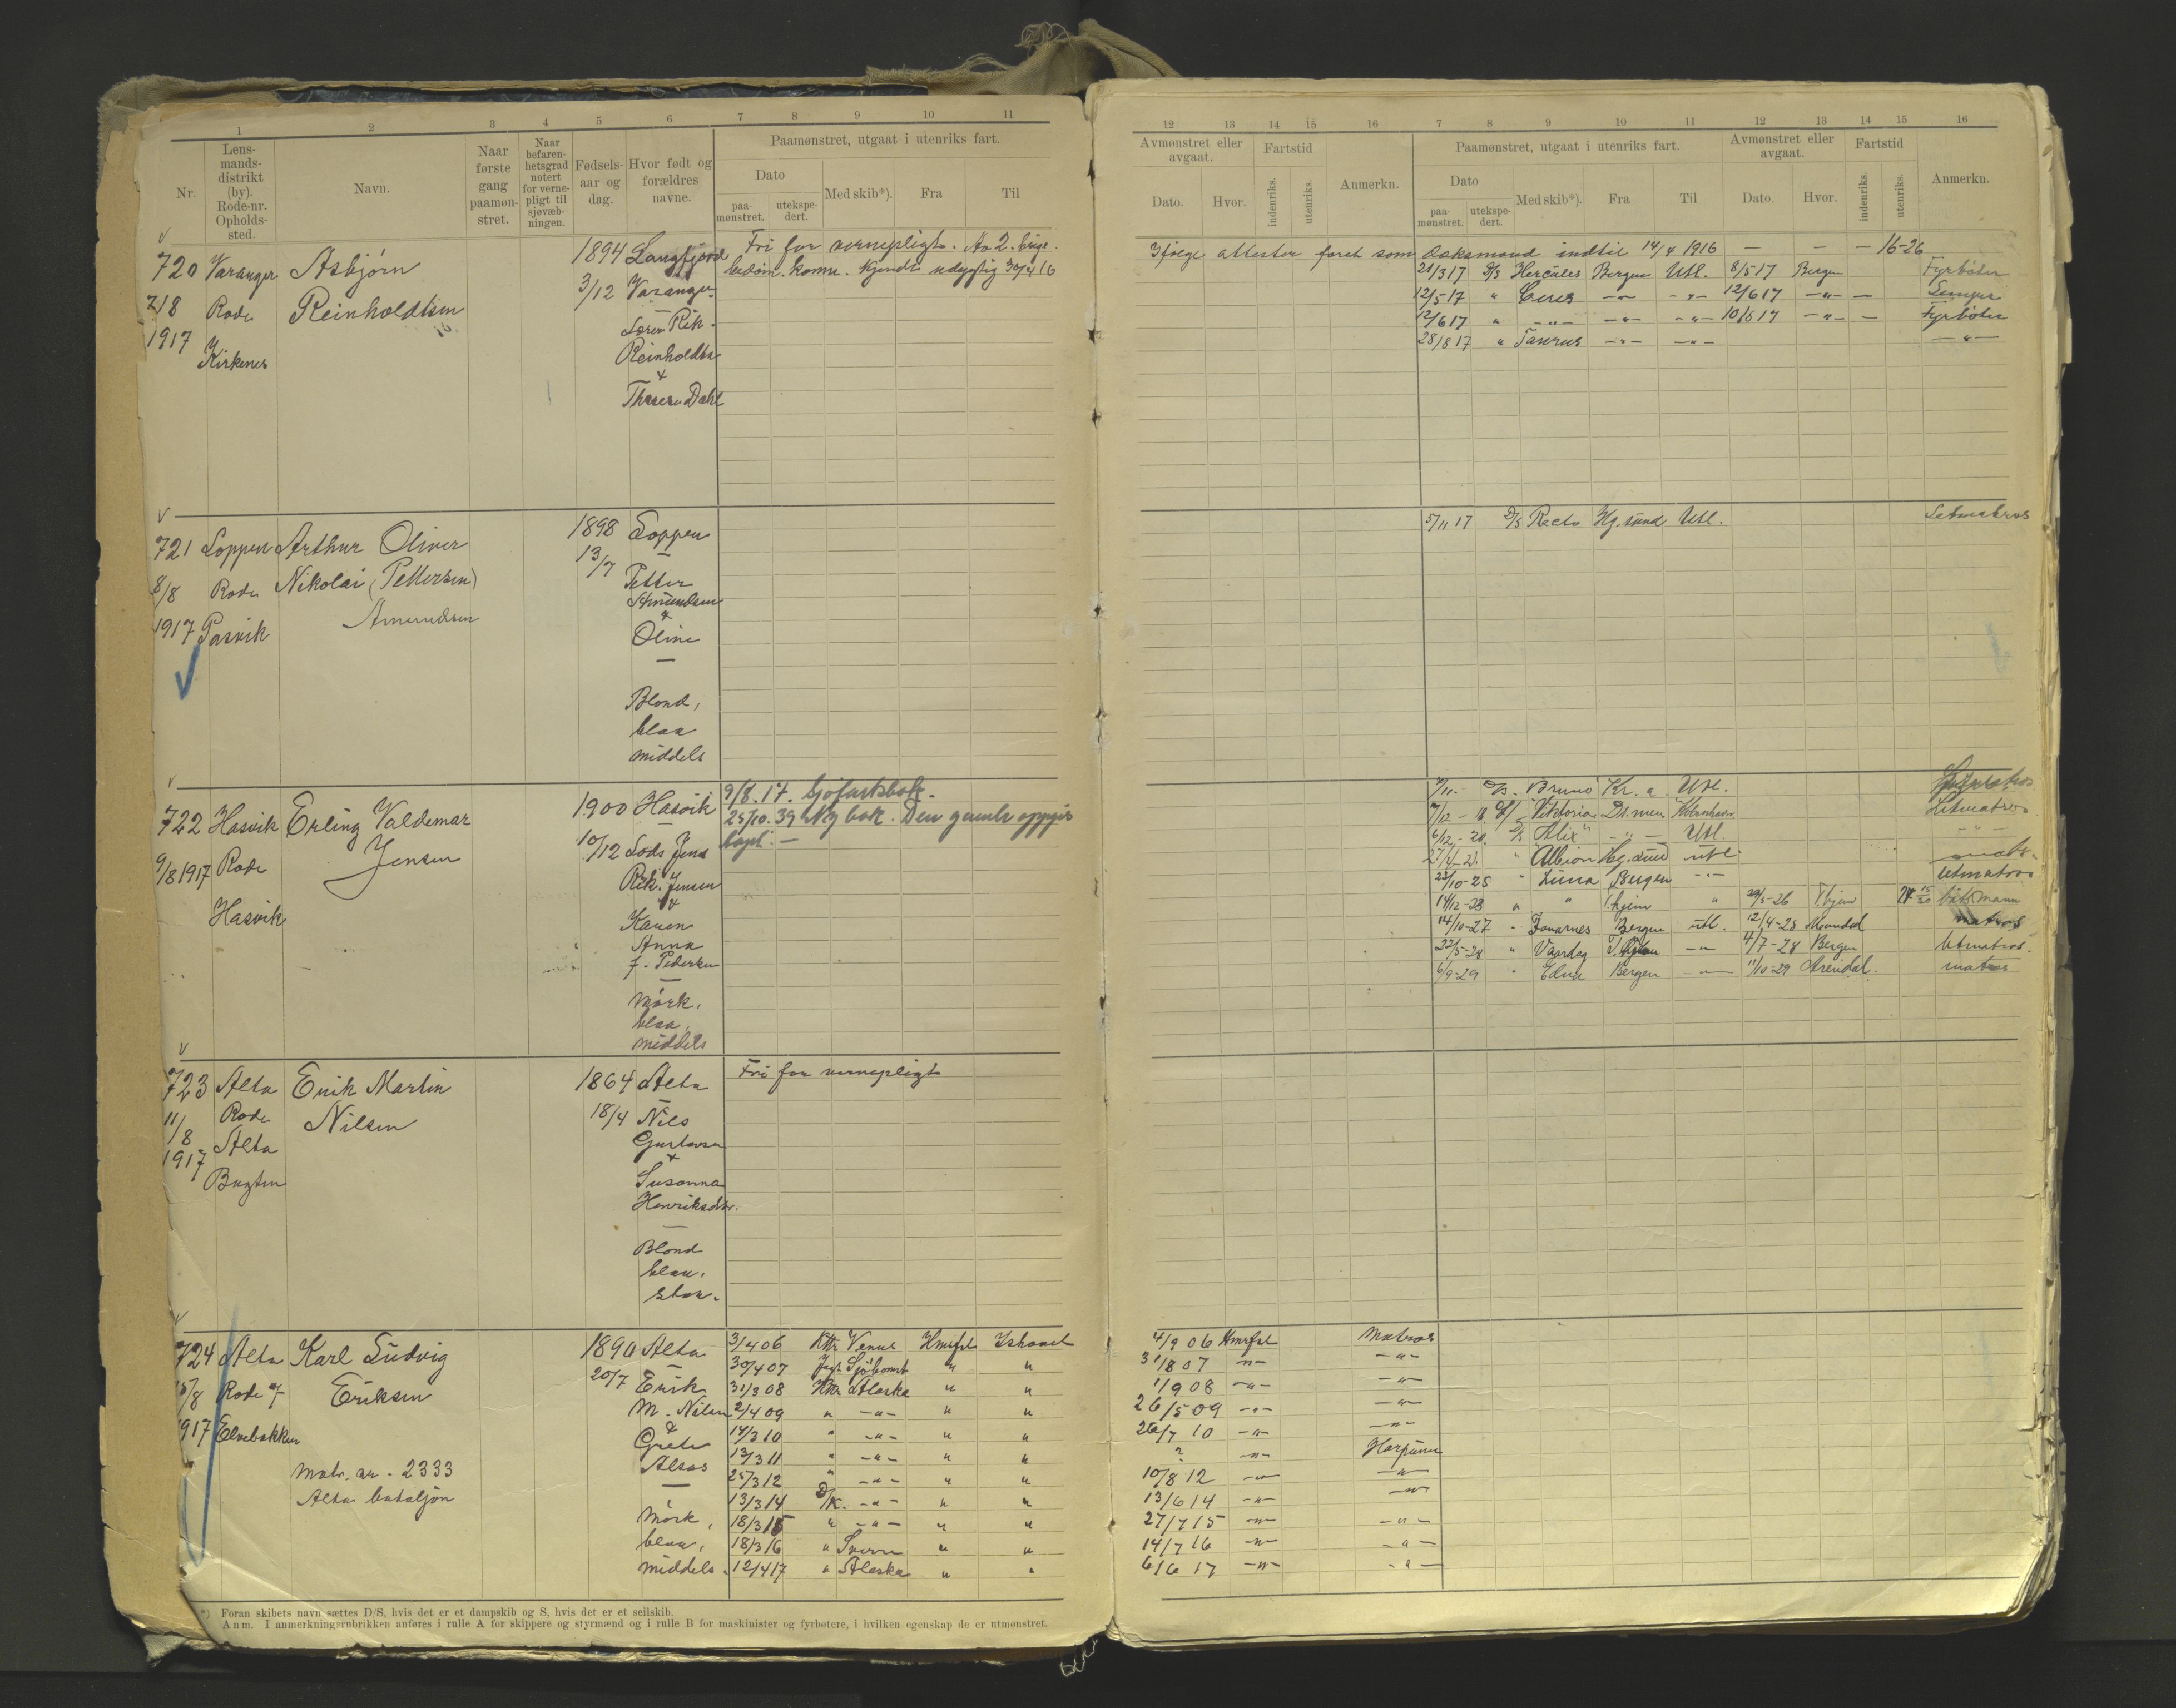 1 2 3 4 5 6 7 8 9 10 11
Nr.
Lens-
mands-
distrikt
(by).
Rode-nr.
Opholds-
sted.
Navn.
Naar
første
gang
paamøn-
stret.
Naar
befaren-
hetsgrad
notert
for verne-
pligt til
sjøvæb-
ningen.
Fødsels-
aar og
dag.
Hvor født og
forældres
navne.
Paamønstret, utgaat i utenriks fart.
Dato
paa-
mønstret.
utekspe-
dert.
Med skib*).
Fra
Til
720 Varanger Asbjørn 1894 Langfjord Fri for vernepligt. Av 2.
7/8 Rode Reinholdtsen 3/12 Varanger kjendt udygtig 30/4 16
1917 Kirkenes
Søren Rik.
Reinholdts
&
Therese Dahl
721 Loppen Arthur Oliver 1898 Loppen
8/8 Rode Nikolai (Pettersen) 13/7
1917 Pasvik Amundsen
Petter
Amundsen
&
Oline
—
Blond,
blaa
middels
722 Hasvik Erling Valdemar 1900 Hasvik 9/8.17. Sjøfartsbok.
9/8 1917 Rode Jensen 10/12 Lods Jens 25/10.39 Ny bok. Den gamle oppgis
Hasvik tapt. —
Rik. Jensen
&
Karen
Anna
f. Pedersen
—
Mørk,
blaa,
middels
723 Alta Erik Martin 1864 Alta Fri for vernepligt
11/8 Rode Nilsen 18/4 Nils
1917 Alta
Bugten
Gustavsen
&
Susanna
Henriksdtr.
—
Blond
blaa.
stor.
724 Alta Karl Ludvig 1890 Alta 3/4 06 Kttr Venus Hmrfst Ishavet
15/8 Rode 7 Eriksen 20/7 Erik 30/4 07 Jagt Sjøblomst " "
1917 Elvebakken M. Nilsen 31/3 08 Kttr Alaska " "
& 2/4 09 " -"- " "
Grete 14/3 10 " -"- " "
Matr. nr. 2333 Aleas 13/3 11 " -"- " "
Alta bataljon — 25/3 12 " -"- " "
13/3 14 D/K. -"- " "
Mørk, 18/3 15 " -"- " "
blaa, 18/3 16 " Sverre " "
middels. 12/4 17 " Alaska " "
*) Foran skibets navn sættes D/S, hvis det er et dampskib og S, hvis det er et seilskib.
Anm. I anmerkningsrubrikken anføres i rulle A for skippere og styrmænd og i rulle B for maskinister og fyrbøtere, i hvilken egenskap de er utmønstret.
12 13 14 15 16 7 8 9 10 11 12 13 14 15 16
Avmønstret eller
avgaat.
Dato.
Hvor.
Fartstid
indenriks.
utenriks.
Anmerkn.
Paamønstret, utgaat i utenriks fart.
Dato
paa-
mønstret.
utekspe-
dert.
Med skib*).
Fra
Til
Avmønstret eller
avgaat.
Dato.
Hvor.
Fartstid
indenriks.
utenriks.
Anmerkn.
Ifølge attester faret som dæksmand indtil 14/4 1916 — — — 16-26
21/3 17 D/S Hercules Bergen Utl. 8/5 17 Bergen Fyrbøter
12/5 17 " Ceres -"- -"- 12/6 17 -"- — Lemper
12/6 17 " -"- -"- -"- 10/8 17 -"- — Fyrbøter
28/8 17 " Taurus -"- -"- -"-
5/11 17 D/S Recto Hg.sund Utl. Letmatros
Bruno Kr. a. Utl.
7/12-18 Viktoria Dr.men Kbenhavn Letmatros
6/12-20. Alix -"- Utl. -"-
27/4-21. " Albion Hg.sund utl.
23/10-25 " Luna Bergen -"- letmatros
14/12-28 " " T.hjem " 29/5-26 T.hjem båtsmann
14/10-27 " Fanarnes Bergen utl. 12/4-28 Mandal matros
22/5-28 " Vaardag -"- 4/7-28 Bergen letmatros.
6/9-29 " Edna Bergen -"- 11/10-29 Arendal. matros
4/9 06 Hmrfst Matros
31/8 07 -"- -"-
1/9 08 -"- -"-
26/5 09 -"- -"-
26/7 10 -"- -"-
? -"- Harpuner
10/8 12 -"- -"-
13/6 14 -"- -"-
27/7 15 -"- -"-
14/7 16 -"- -"-
6/6 17 -"- -"-